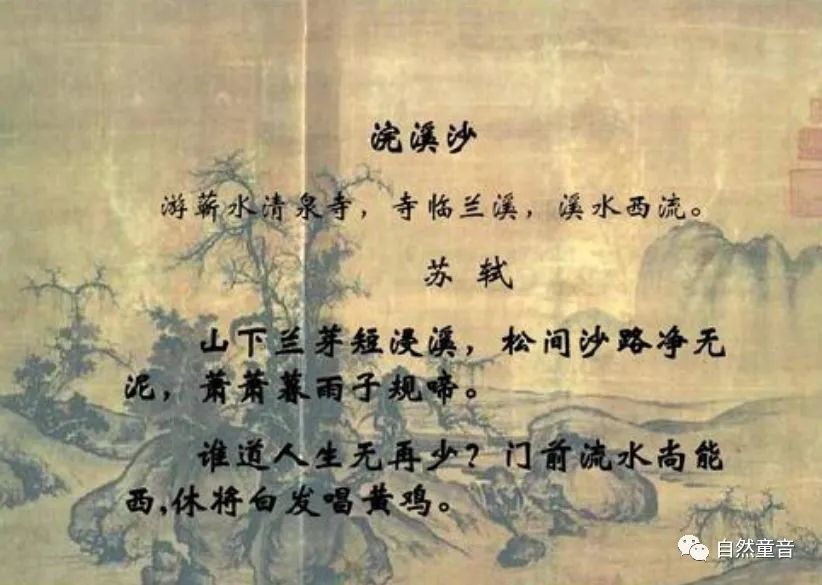 浣溪沙
游蕲水清泉寺，寺临兰溪，溪水西流。
苏轼
山下兰芽短浸溪，松间沙路净无
泥，萧萧暮雨子规啼。
谁道人生无再少？门前流水尚能
西,休将白发唱黄鸡。
自然童音